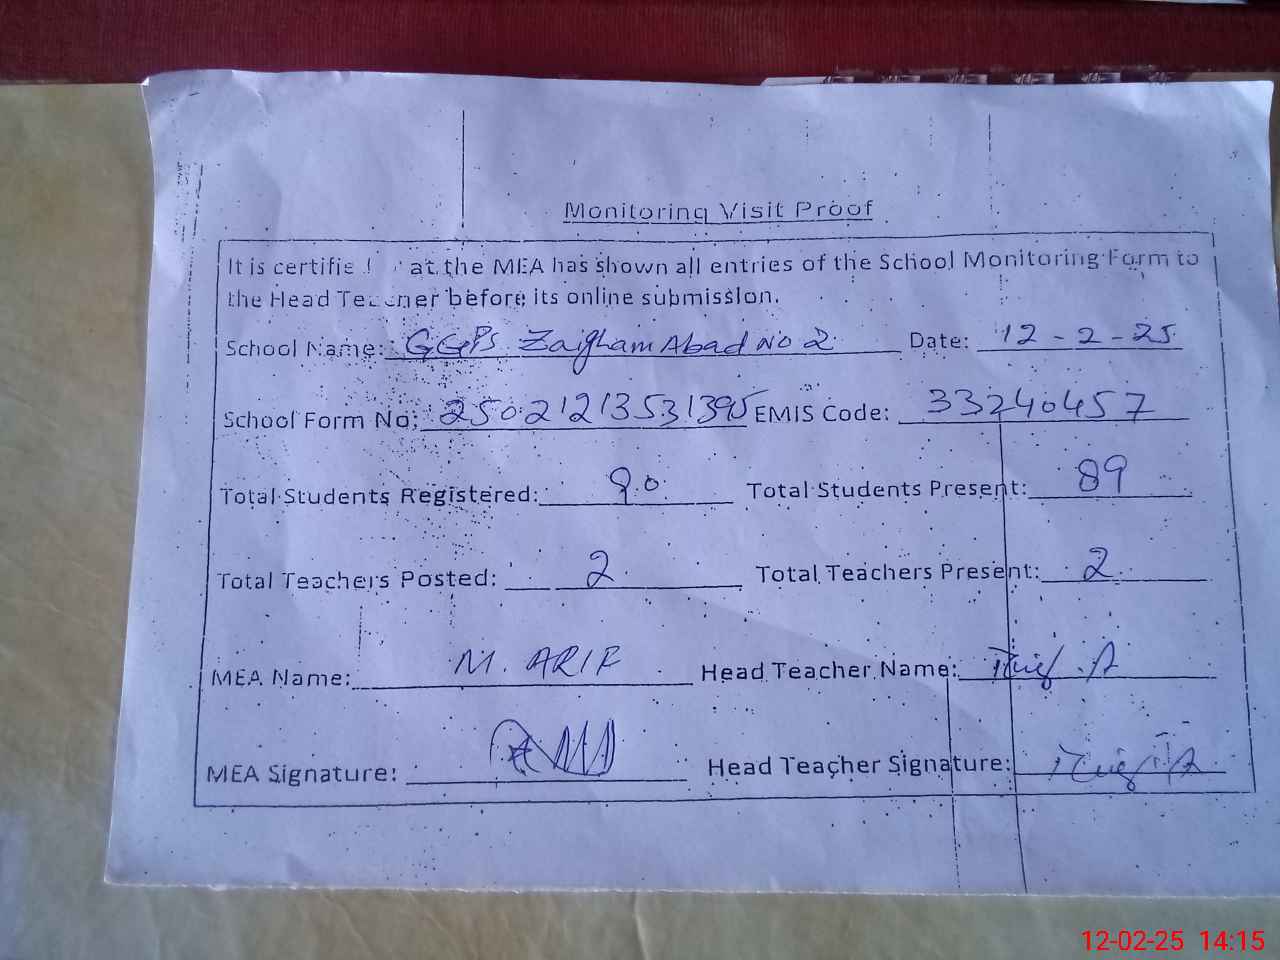 Monitoring Visit Proof
It is certified that the MEA has shown all entries of the School Monitoring Form to
the Head Teacher before its online submission.
School Name: GGPS Zaigham Abad No 2 Date: 12-2-25
School Form No: 25021213531395 EMIS Code: 33240457
Total Students Registered: 90 Total Students Present: 89
Total Teachers Posted: 2 Total Teachers Present: 2
MEA Name: M. ARIF Head Teacher Name:
MEA Signature: Head Teacher Signature:
12-02-25 14:15